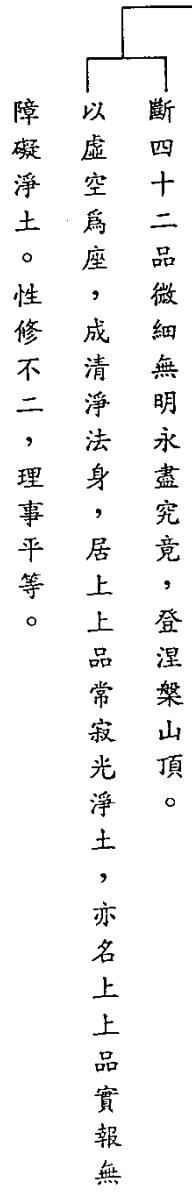 斷四十二品微細無明永盡究竟，登涅槃山頂。
以虛空爲座，成清淨法身，居上上品常寂光淨土，亦名上上品實報無
障礙淨土。性修不二，理事平等。